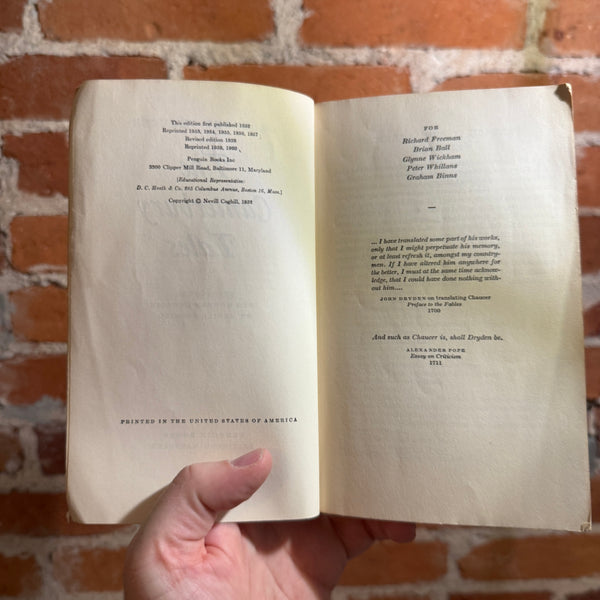 This edition first published 1952
Reprinted 1953, 1954, 1955, 1956, 1957
Revised edition 1958
Reprinted 1959, 1960
Penguin Books Inc
3300 Clipper Mill Road, Baltimore 11, Maryland
[Educational Representative:
D. C. Heath & Co. 285 Columbus Avenue, Boston 16, Mass.]
Copyright © Nevill Coghill, 1952
PRINTED IN THE UNITED STATES OF AMERICA
FOR
Richard Freeman
Brian Ball
Glynne Wickham
Peter Whillans
Graham Binns
—
... I have translated some part of his works,
only that I might perpetuate his memory,
or at least refresh it, amongst my country-
men. If I have altered him anywhere for
the better, I must at the same time acknow-
ledge, that I could have done nothing with-
out him....
JOHN DRYDEN on translating Chaucer
Preface to the Fables
1700
And such as Chaucer is, shall Dryden be.
ALEXANDER POPE
Essay on Criticism
1711